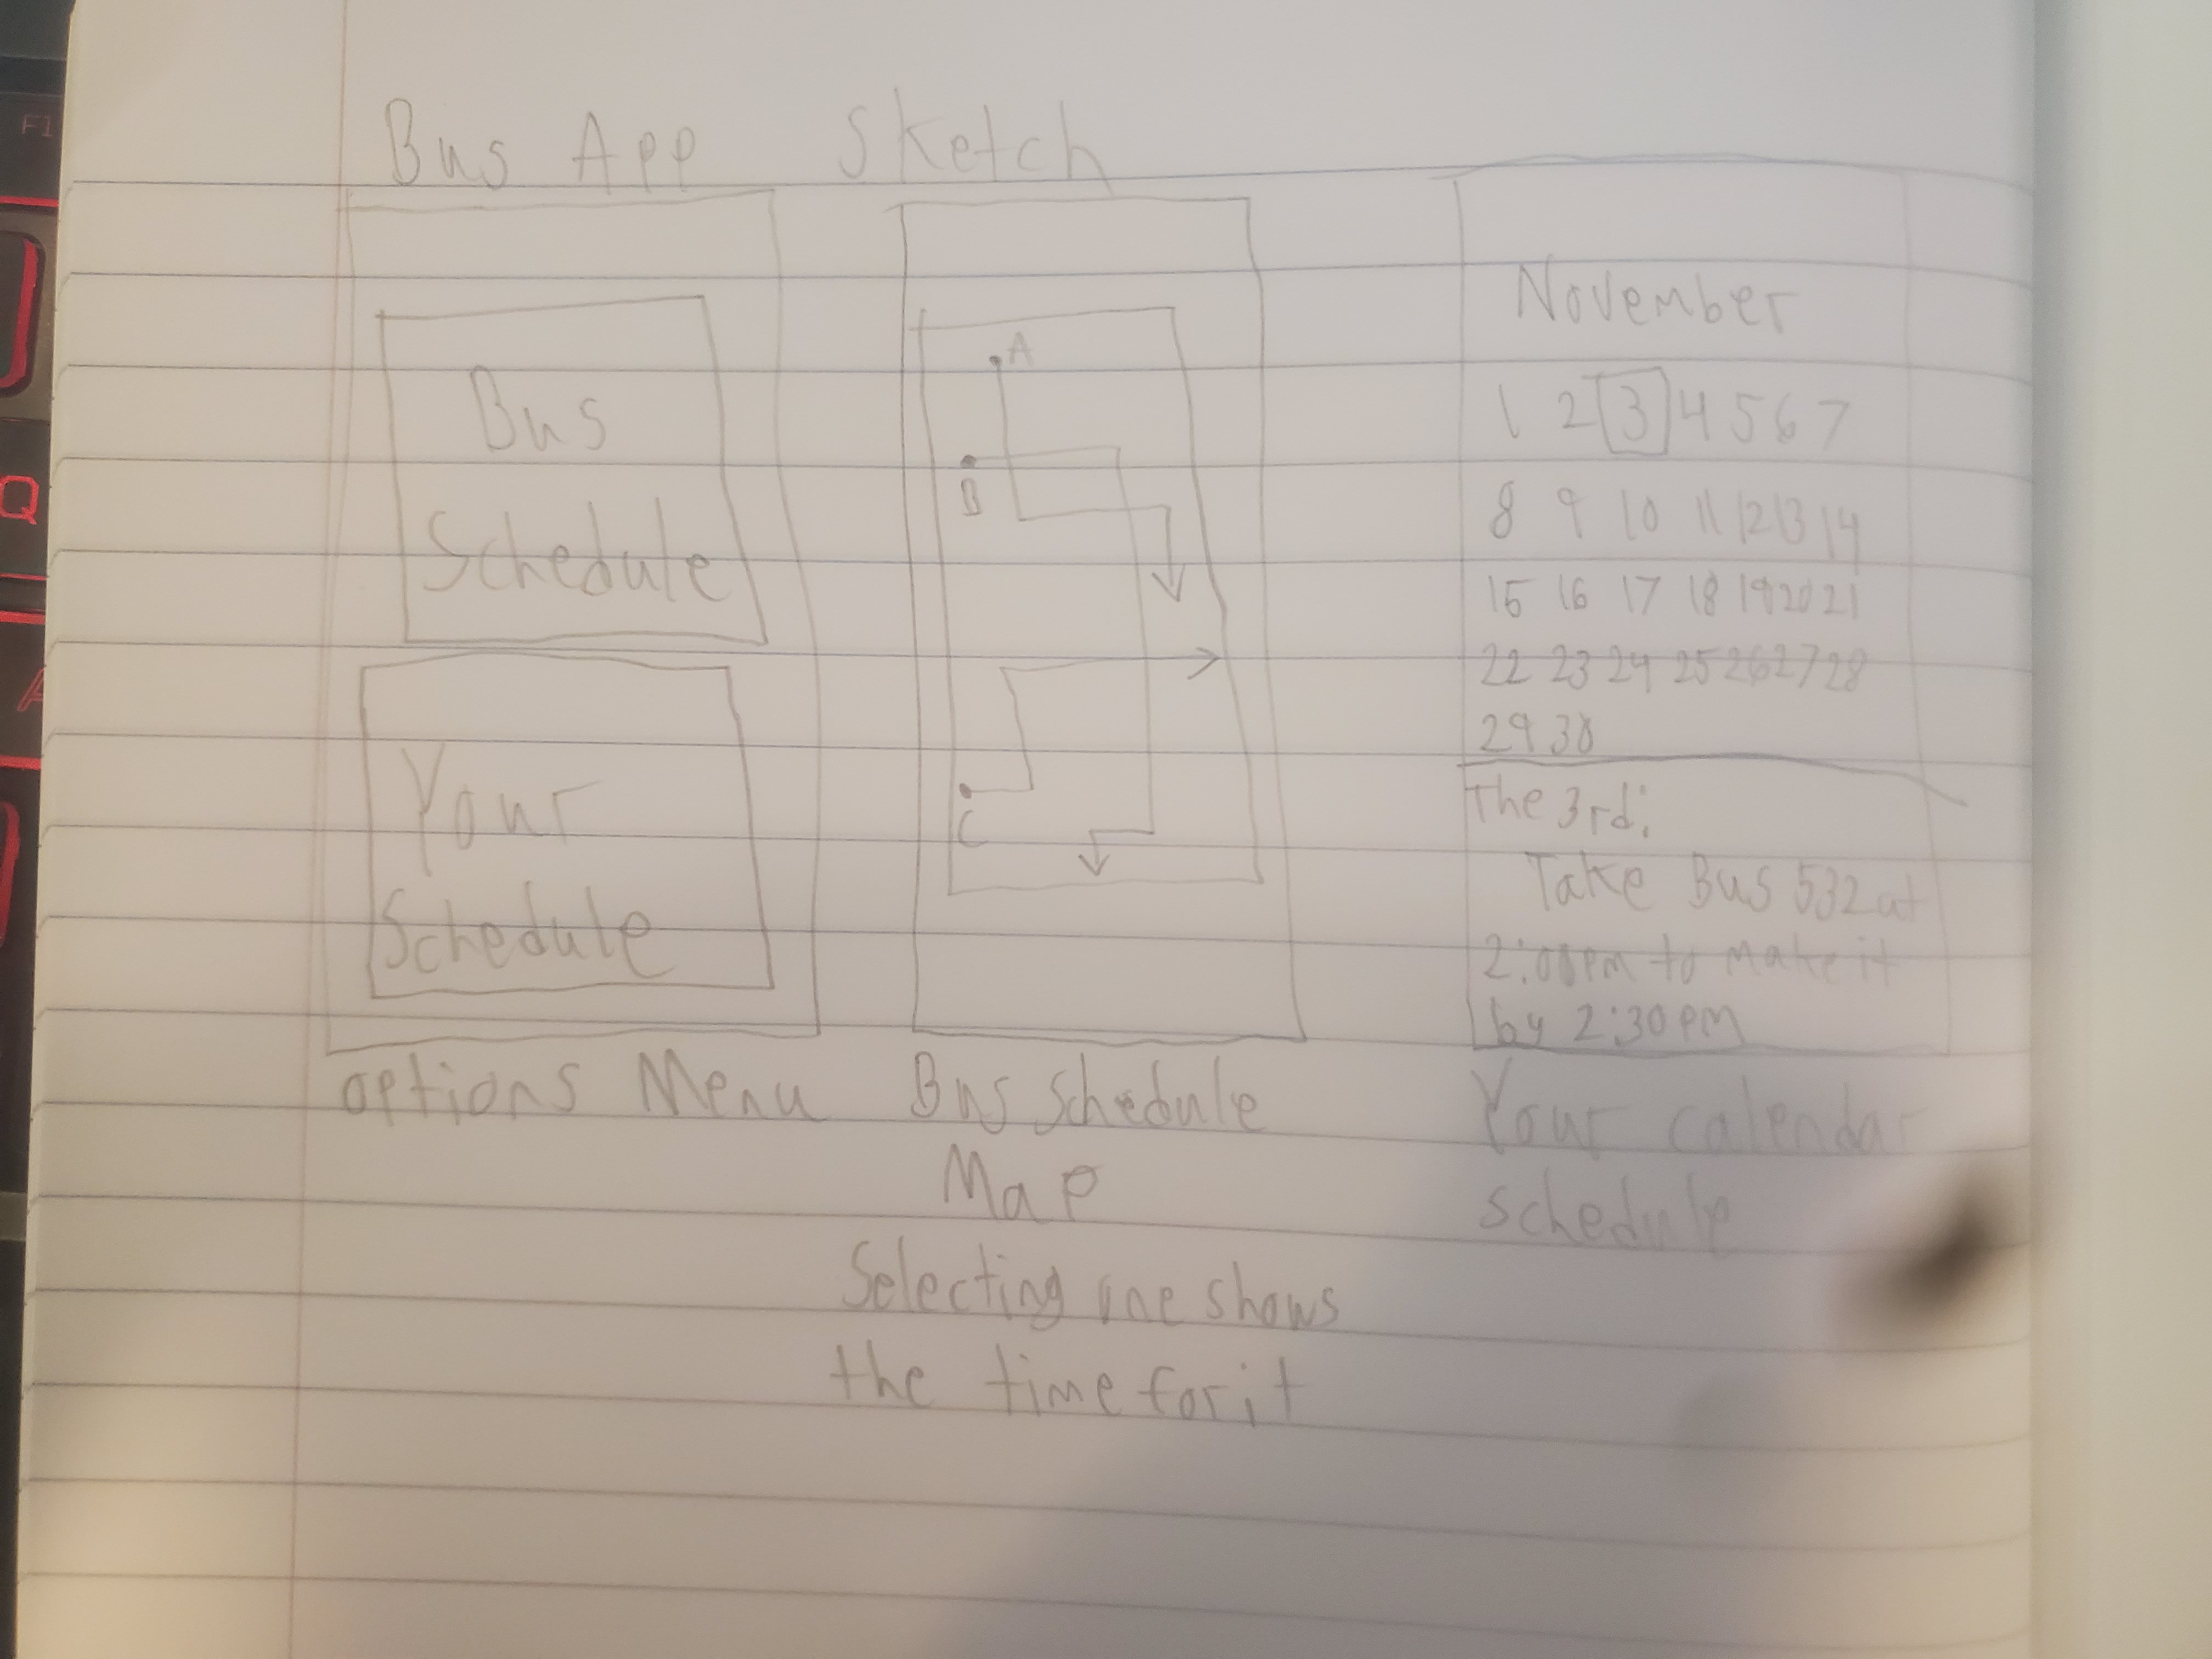 Bus App Sketch
Bus
Schedule
Your
Schedule
options Menu
A
B
C
Bus Schedule
Map
Selecting one shows
the time for it
November
1 2 3 4 5 6 7
8 9 10 11 12 13 14
15 16 17 18 19 20 21
22 23 24 25 26 27 28
29 30
The 3rd:
Take Bus 532 at
2:00pm to make it
by 2:30pm
Your calendar
schedule
F1
Q
A